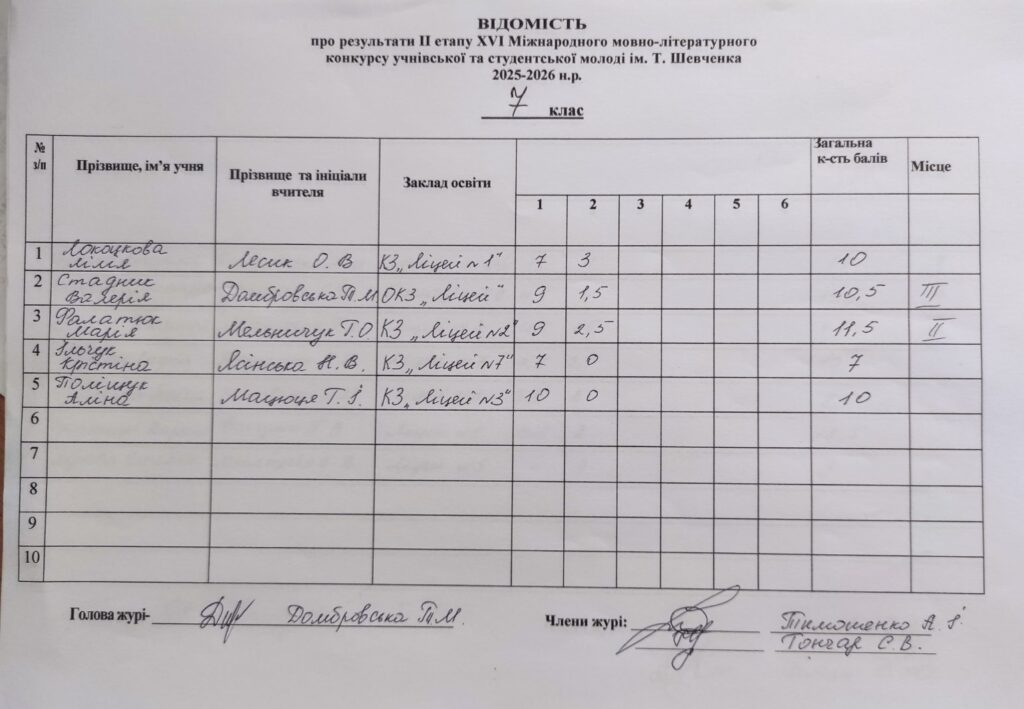 ВІДОМІСТЬ
про результати ІІ етапу XVI Міжнародного мовно-літературного
конкурсу учнівської та студентської молоді ім. Т. Шевченка
2025-2026 н.р.
7 клас
№ з/п Прізвище, ім’я учня Прізвище та ініціали вчителя Заклад освіти 1 2 3 4 5 6 Загальна к-сть балів Місце
1 Локоцкова Лілія Лесик О. В КЗ „Ліцей №1" 7 3 10
2 Стадник Валерія Домбровська Т.М. ОКЗ „Ліцей" 9 1,5 10,5 III
3 Фалатюк Марія Мельничук Т.О. КЗ „Ліцей №2" 9 2,5 11,5 II
4 Ільчук Крістіна Ясінська Н.В. КЗ „Ліцей №7" 7 0 7
5 Поліщук Аліна Т.І. КЗ „Ліцей №3" 10 0 10
6
7
8
9
10
Голова журі- Домбровська Т.М. Члени журі: Тимошенко А. І.
Гончар С. В.